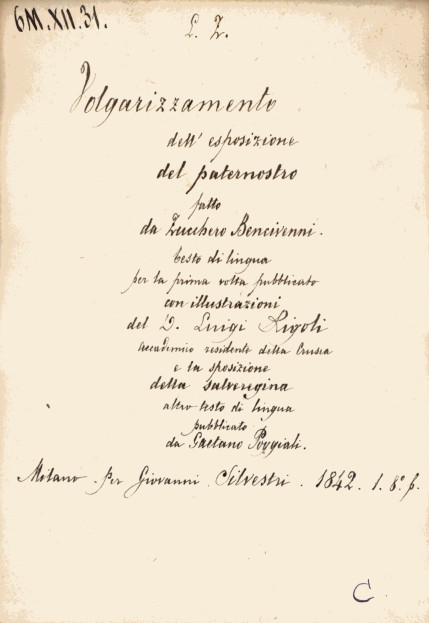 6M.XII.31.
L. Z.
Volgarizzamento
dell' esposizione
del paternostro
fatto
da Zucchero Bencivenni.
testo di lingua
per la prima volta pubblicato
con illustrazioni
del D. Luigi Rigoli
Accademico residente della Crusca
e la sposizione
della salveregina
altro testo di lingua
pubblicato
da Gaetano Poggiali.
Milano. Per Giovanni Silvestri. 1842. 1. 8.º f.
C